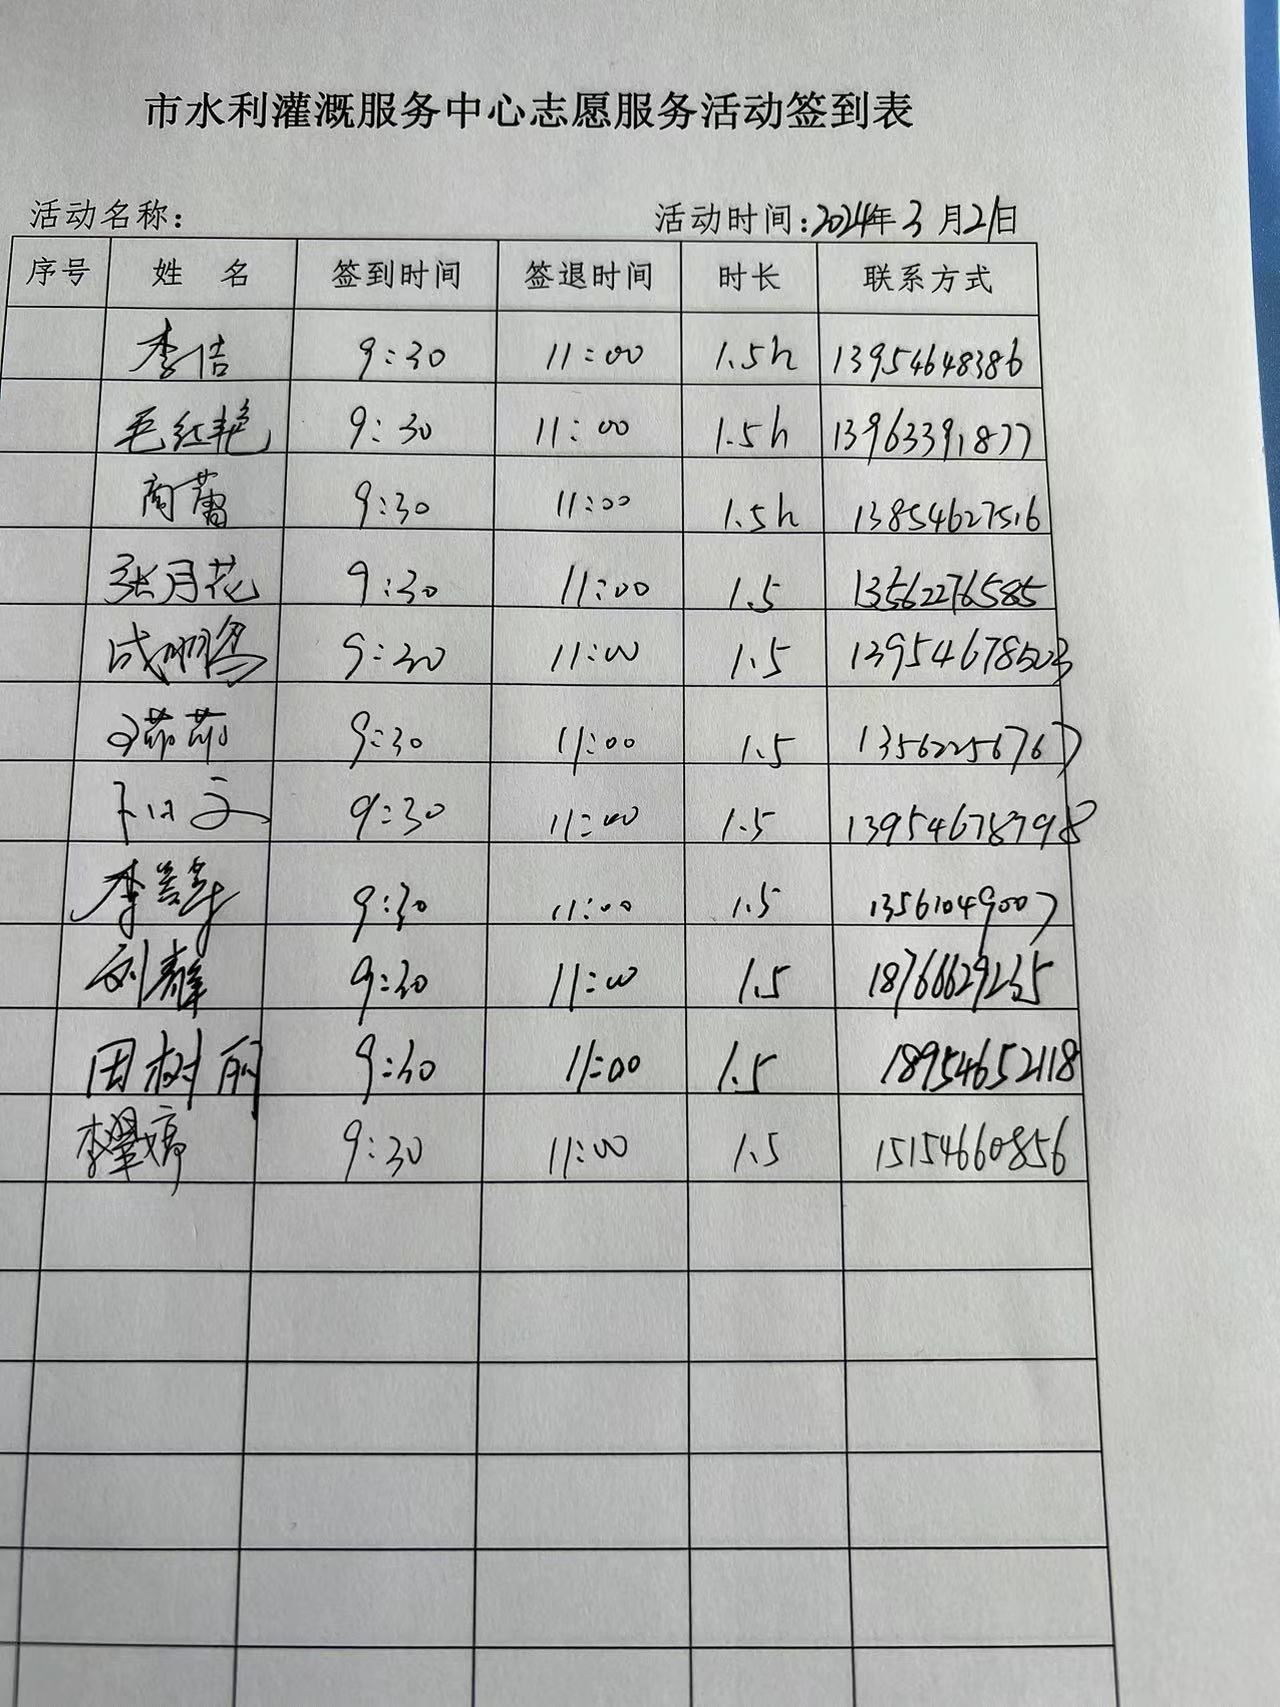 市水利灌溉服务中心志愿服务活动签到表
活动名称: 活动时间:2024年3月21日
序号 姓 名 签到时间 签退时间 时长 联系方式
李佶 9:30 11:00 1.5h 13954648386
毛红艳 9:30 11:00 1.5h 13963391877
商蕾 9:30 11:00 1.5h 13854627516
张月花 9:30 11:00 1.5 13562276585
成鹏 9:30 11:00 1.5 13954678503
茹茹 9:30 11:00 1.5 13562256767
卜 文 9:30 11:00 1.5 13954678798
李 9:30 11:00 1.5 13561049007
刘 9:30 11:00 1.5 18766629235
田树丽 9:30 11:00 1.5 18954652118
李 婷 9:30 11:00 1.5 15154660856